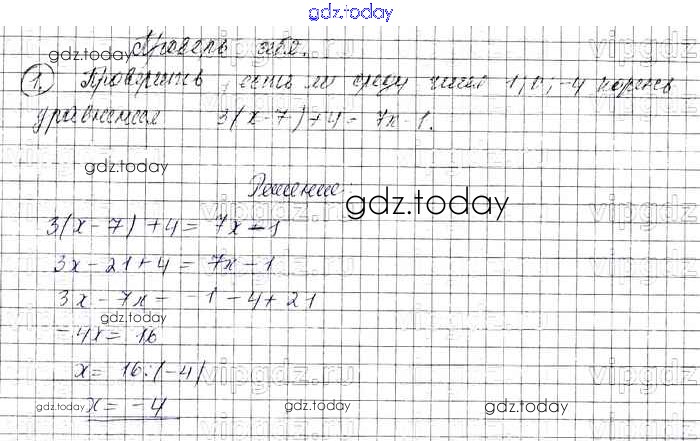 gdz.today
gdz.today Проверь себя.
1. Проверить, есть ли среди чисел 1; 0; -4 корень
уравнения 3(x-7)+4= 7x-1.
gdz.today
Решение.
gdz.today
3(x-7)+4= 7x-1
3x-21+4= 7x-1
3x-7x= -1-4+21
gdz.today
-4x= 16
x= 16:(-4)
vipgdz.ru
gdz.today x= -4 gdz.today gdz.today